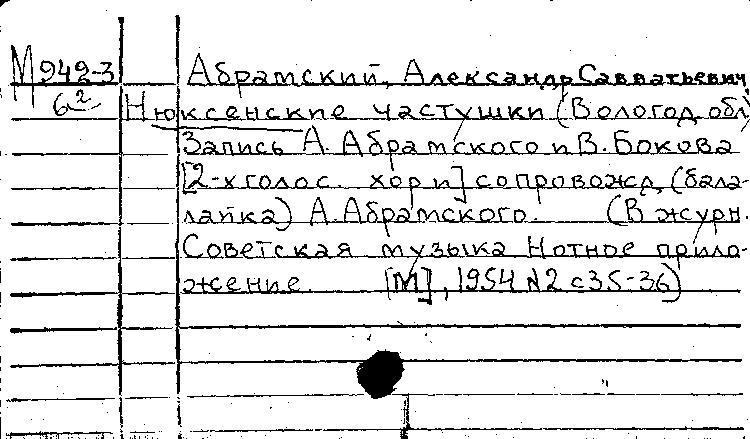 М 942-3 Абрамский, Александр Савватьевич
6² Нюксенские частушки (Вологод. обл)
Запись А. Абрамского и В. Бокова
[2-х голос. хор и] сопровожд. (бала-
лайка) А. Абрамского. (В журн.
Советская музыка Нотное прило-
жение. [М], 1954 №2 с 35-36)